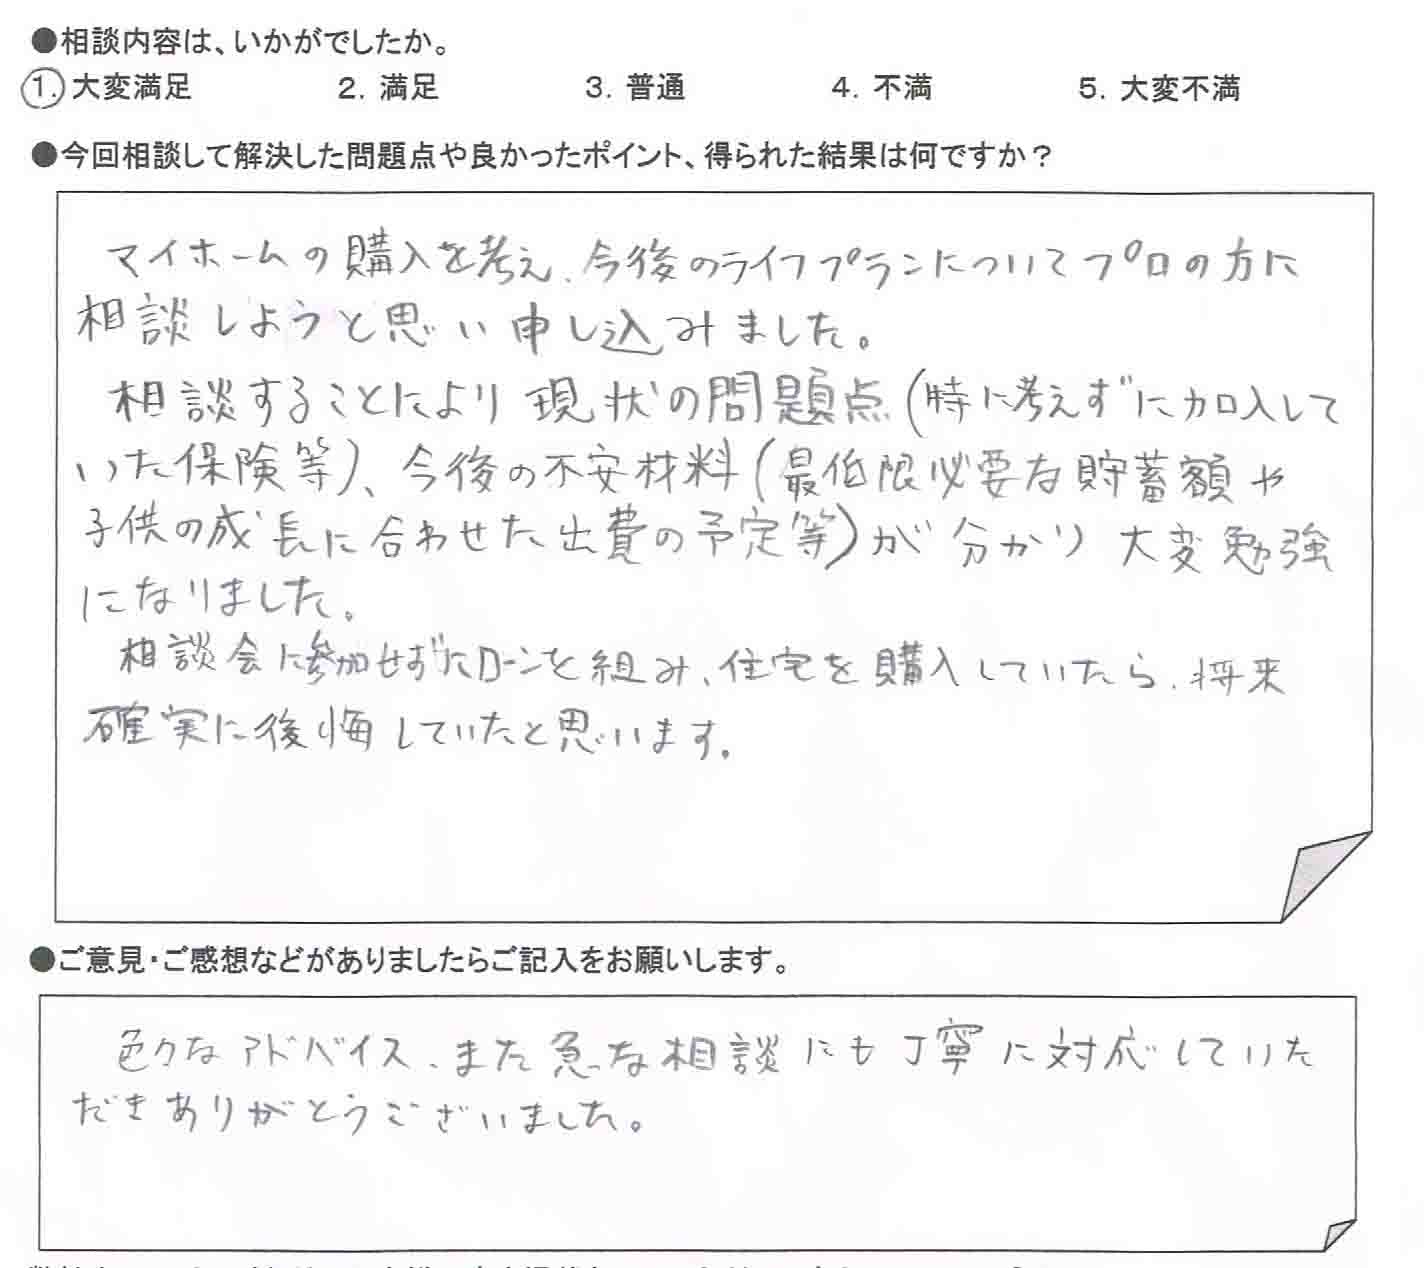 ●相談内容は、いかがでしたか。
1. 大変満足 2. 満足 3. 普通 4. 不満 5. 大変不満
●今回相談して解決した問題点や良かったポイント、得られた結果は何ですか？
マイホームの購入を考え、今後のライフプランについてプロの方に
相談しようと思い申し込みました。
相談することにより現状の問題点(特に考えずに加入して
いた保険等)、今後の不安材料(最低限必要な貯蓄額や
子供の成長に合わせた出費の予定等)が分かり大変勉強
になりました。
相談会に参加せずにローンを組み、住宅を購入していたら、将来
確実に後悔していたと思います。
●ご意見・ご感想などがありましたらご記入をお願いします。
色々なアドバイス、また急な相談にも丁寧に対応していた
だきありがとうございました。